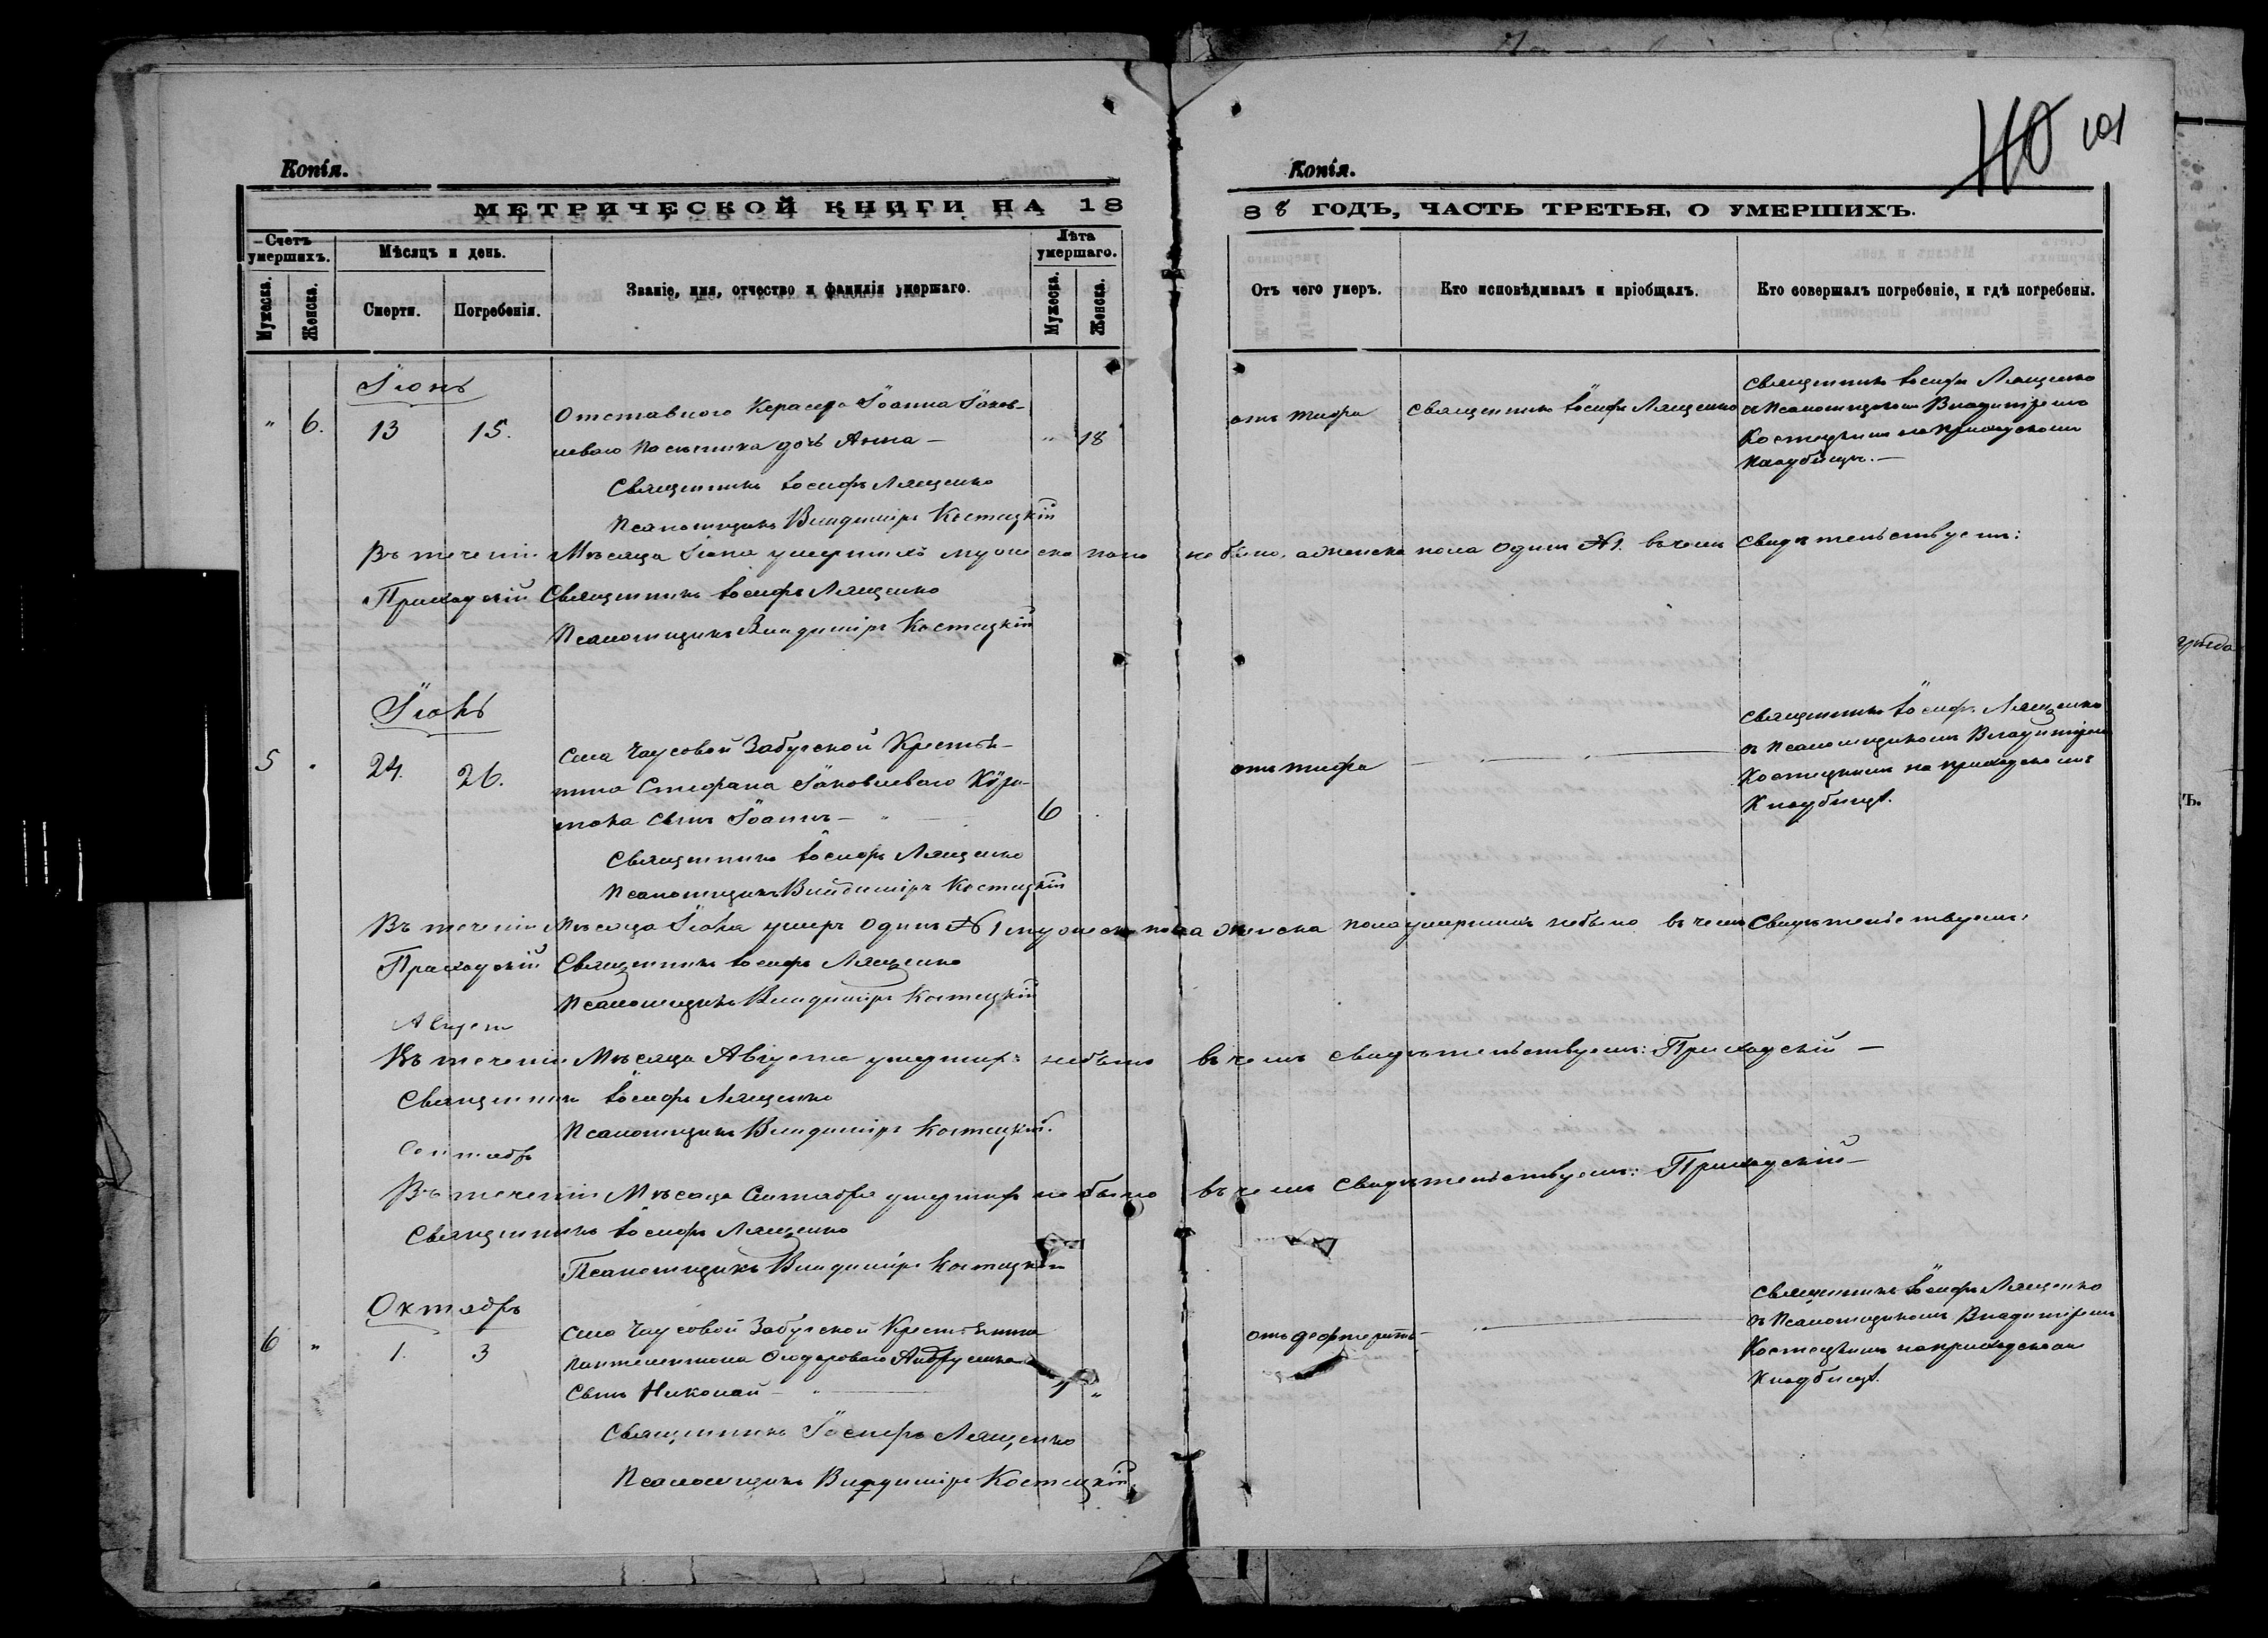 110 101
Копія.
МЕТРИЧЕСКОЙ КНИГИ НА 18
Счетъ умершихъ.
Мужеска.
Женска.
Мѣсяцъ и день.
Смерти.
Погребенія.
Званіе, имя, отчество и фамилія умершаго.
Лѣта умершаго.
Мужеска.
Женска.
Іюнь
" 6. 13 15.
Отставного Іоанна Іаков-
леваго дочь Анна — " 18
Священникъ Іосифъ Лященко
Псаломщикъ Владиміръ Костецкій
Въ теченіи Мѣсяца Іюня умершихъ мужеска пола не было, а женска пола одинъ №1. въ чемъ Свидѣтельствуемъ:
Приходскій Священникъ Іосифъ Лященко
Псаломщикъ Владиміръ Костецкій
Іюль
5 " 24. 26.
Села Чаусовой Забугской Крестья-
нина Стефана Іаковлеваго
сынъ Іоаннъ — " 6
Священникъ Іосифъ Лященко
Псаломщикъ Владиміръ Костецкій
Въ теченіи Мѣсяца Іюля умеръ одинъ №1 мужеска пола женска пола умершихъ небыло въ чемъ Свидѣтельствуемъ:
Приходскій Священникъ Іосифъ Лященко
Псаломщикъ Владиміръ Костецкій
Августъ
Въ теченіи Мѣсяца Августа умершихъ небыло въ чемъ свидѣтельствуемъ: Приходскій —
Священникъ Іосифъ Лященко
Псаломщикъ Владиміръ Костецкій.
Сентябрь
Въ теченіи Мѣсяца Сентября умершихъ не было въ чемъ Свидѣтельствуемъ: Приходскій —
Священникъ Іосифъ Лященко
Псаломщикъ Владиміръ Костецкій
Октябрь
6 " 1. 3
Села Чаусовой Забугской Крестьянина
Пантелеимона Ѳеодороваго
Сынъ Николай — "
Священникъ Іосифъ Лященко
Псаломщикъ Владиміръ Костецкій
Копія.
88 ГОДЪ, ЧАСТЬ ТРЕТЬЯ, О УМЕРШИХЪ.
Отъ чего умеръ.
Кто исповѣдывалъ и пріобщалъ.
Кто совершалъ погребеніе, и гдѣ погребены.
отъ тифа
Священникъ Іосифъ Лященко
Священникъ Іосифъ Лященко
съ Псаломщикомъ Владиміромъ
Костецкимъ на приходскомъ
Кладбищѣ. —
отъ тифа
Священникъ Іосифъ Лященко
съ Псаломщикомъ Владиміромъ
Костецкимъ на приходскомъ
Кладбищѣ.
отъ дефтерита
Священникъ Іосифъ Лященко
съ Псаломщикомъ Владиміромъ
Костецкимъ на приходскомъ
Кладбищѣ.